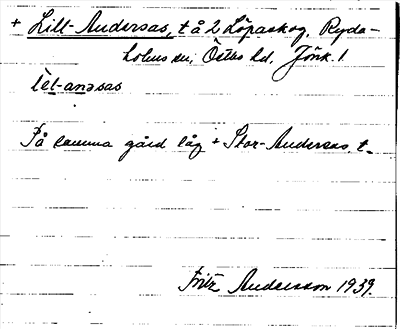 + Lill-Andersas, t å 2 Löpaskog, Ryda-
holms sn, Östbo hd, Jönk. l.
lɛt-anəsas
På samma gård låg + Stor-Andersas, t.
Fritz Andersson 1939.